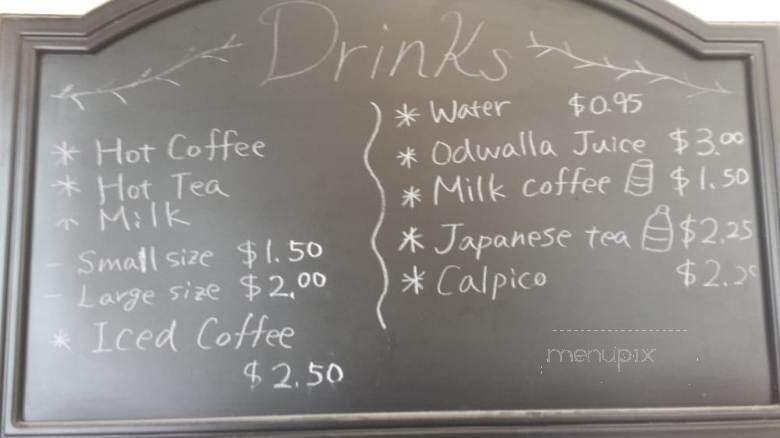 Drinks
* Hot Coffee
* Hot Tea
* Milk
- Small size $1.50
- Large size $2.00
* Iced Coffee
$2.50
* Water $0.95
* Odwalla Juice $3.00
* Milk coffee $1.50
* Japanese tea $2.25
* Calpico
menupix